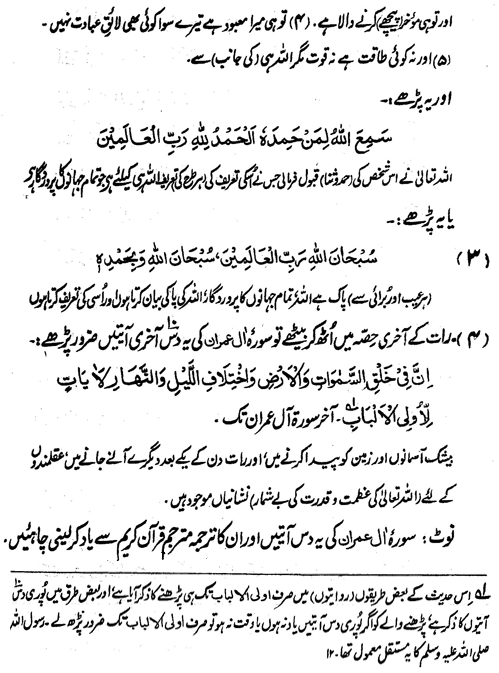 اور تو ہی مؤخر (پیچھے) کرنے والا ہے. (۴) تو ہی میرا معبود ہے تیرے سوا کوئی بھی لائق عبادت نہیں -
(۵) اور نہ کوئی طاقت ہے نہ قوت مگر اللہ ہی (کی جانب) سے.
اور یہ پڑھے:-
سَمِعَ اللهُ لِمَنْ حَمِدَهٗ اَلْحَمْدُ لِلّٰهِ رَبِّ الْعَالَمِيْنَ
اللہ تعالیٰ نے اس شخص کی (حمد و ثنا) قبول فرمالی جس نے اسکی تعریف کی (ہر طرح کی) تعریف اللہ ہی کیلئے ہے جو تمام جہانوں کا پروردگار ہے
یا یہ پڑھے:-
(۳) سُبْحَانَ اللهِ رَبِّ الْعَالَمِيْنَ، سُبْحَانَ اللهِ وَبِحَمْدِهٖ
(ہر عیب اور برائی سے) پاک ہے اللہ تمام جہانوں کا پروردگار، اللہ کی پاکی بیان کرتا ہوں اور اُسی کی تعریف کرتا ہوں
(۴)- رات کے آخری حصہ میں اُٹھ کر بیٹھے تو سورۂ اٰل عمران کی یہ دس آخری آیتیں ضرور پڑھے:-
اِنَّ فِيْ خَلْقِ السَّمٰوَاتِ وَالْاَرْضِ وَاخْتِلَافِ اللَّيْلِ وَالنَّهَارِ لَاٰيَاتٍ
لِّاُولِى الْاَلْبَابِ ؎۱ - آخر سورۃ آل عمران تک.
بیشک آسمانوں اور زمین کو پیدا کرنے میں، اور رات دن کے یکے بعد دیگرے آنے جانے میں، عقلمندوں
کے لئے (اللہ تعالیٰ کی عظمت و قدرت کی بے شمار) نشانیاں موجود ہیں.
نوٹ: سورۂ اٰل عمران کی یہ دس آیتیں اور ان کا ترجمہ مترجم قرآن کریم سے یاد کر لینی چاہئیں.
؎۱ اِس حدیث کے بعض طریقوں (روایتوں) میں صرف اولی الالباب تک ہی پڑھنے کا ذکر آیا ہے اور بعض طرق میں پُوری دس
آیتوں کا ذکر ہے، پڑھنے والے کو اگر پُوری دس آیتیں یاد نہ ہوں یا وقت نہ ہو تو صرف اولی الالباب تک ضرور پڑھ لے - رسول اللہ
صلی اللہ علیہ وسلم کا یہ مستقل معمول تھا. ۱۲